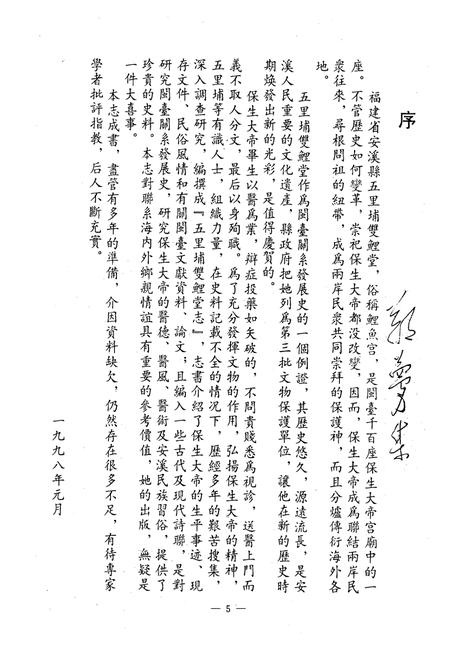 序
福建省安溪縣五里埔雙鯉堂，俗稱鯉魚宮，是閩臺千百座保生大帝宮廟中的一
座。不管歷史如何變革，崇祀保生大帝都沒改變，因而，保生大帝成爲聯結兩岸民
衆往來，尋根問祖的紐帶，成爲兩岸民衆共同崇拜的保護神，而且分爐傳衍海外各
地。
五里埔雙鯉堂作爲閩臺關系發展史的一個例證，其歷史悠久，源遠流長，是安
溪人民重要的文化遺產，縣政府把她列爲第三批文物保護單位，讓他在新的歷史時
期煥發出新的光彩，是值得慶賀的。
保生大帝畢生以醫爲業，辯症投藥如矢破的，不問貴賤悉爲視診，送醫上門而
義不取人分文，最后以身殉職。爲了充分發揮文物的作用，弘揚保生大帝的精神，
五里埔等有識人士，組織力量，在史料記載不全的情况下，歷經多年的艱苦搜集，
深入調查研究，編撰成『五里埔雙鯉堂志』，志書介紹了保生大帝的生平事迹、現
存文件、民俗風情和有關閩臺文獻資料、論文；且編入一些古代及現代詩聯，是對
研究閩臺關系發展史，研究保生大帝的醫德、醫風、醫術及安溪民族習俗，提供了
珍貴的史料。本志對聯系海内外鄉親情誼具有重要的參考價值，她的出版，無疑是
一件大喜事。
本志成書，盡管有多年的準備，介因資料缺欠，仍然存在很多不足，有待專家
學者批評指教，后人不斷充實。
一九九八年元月
— 5 —